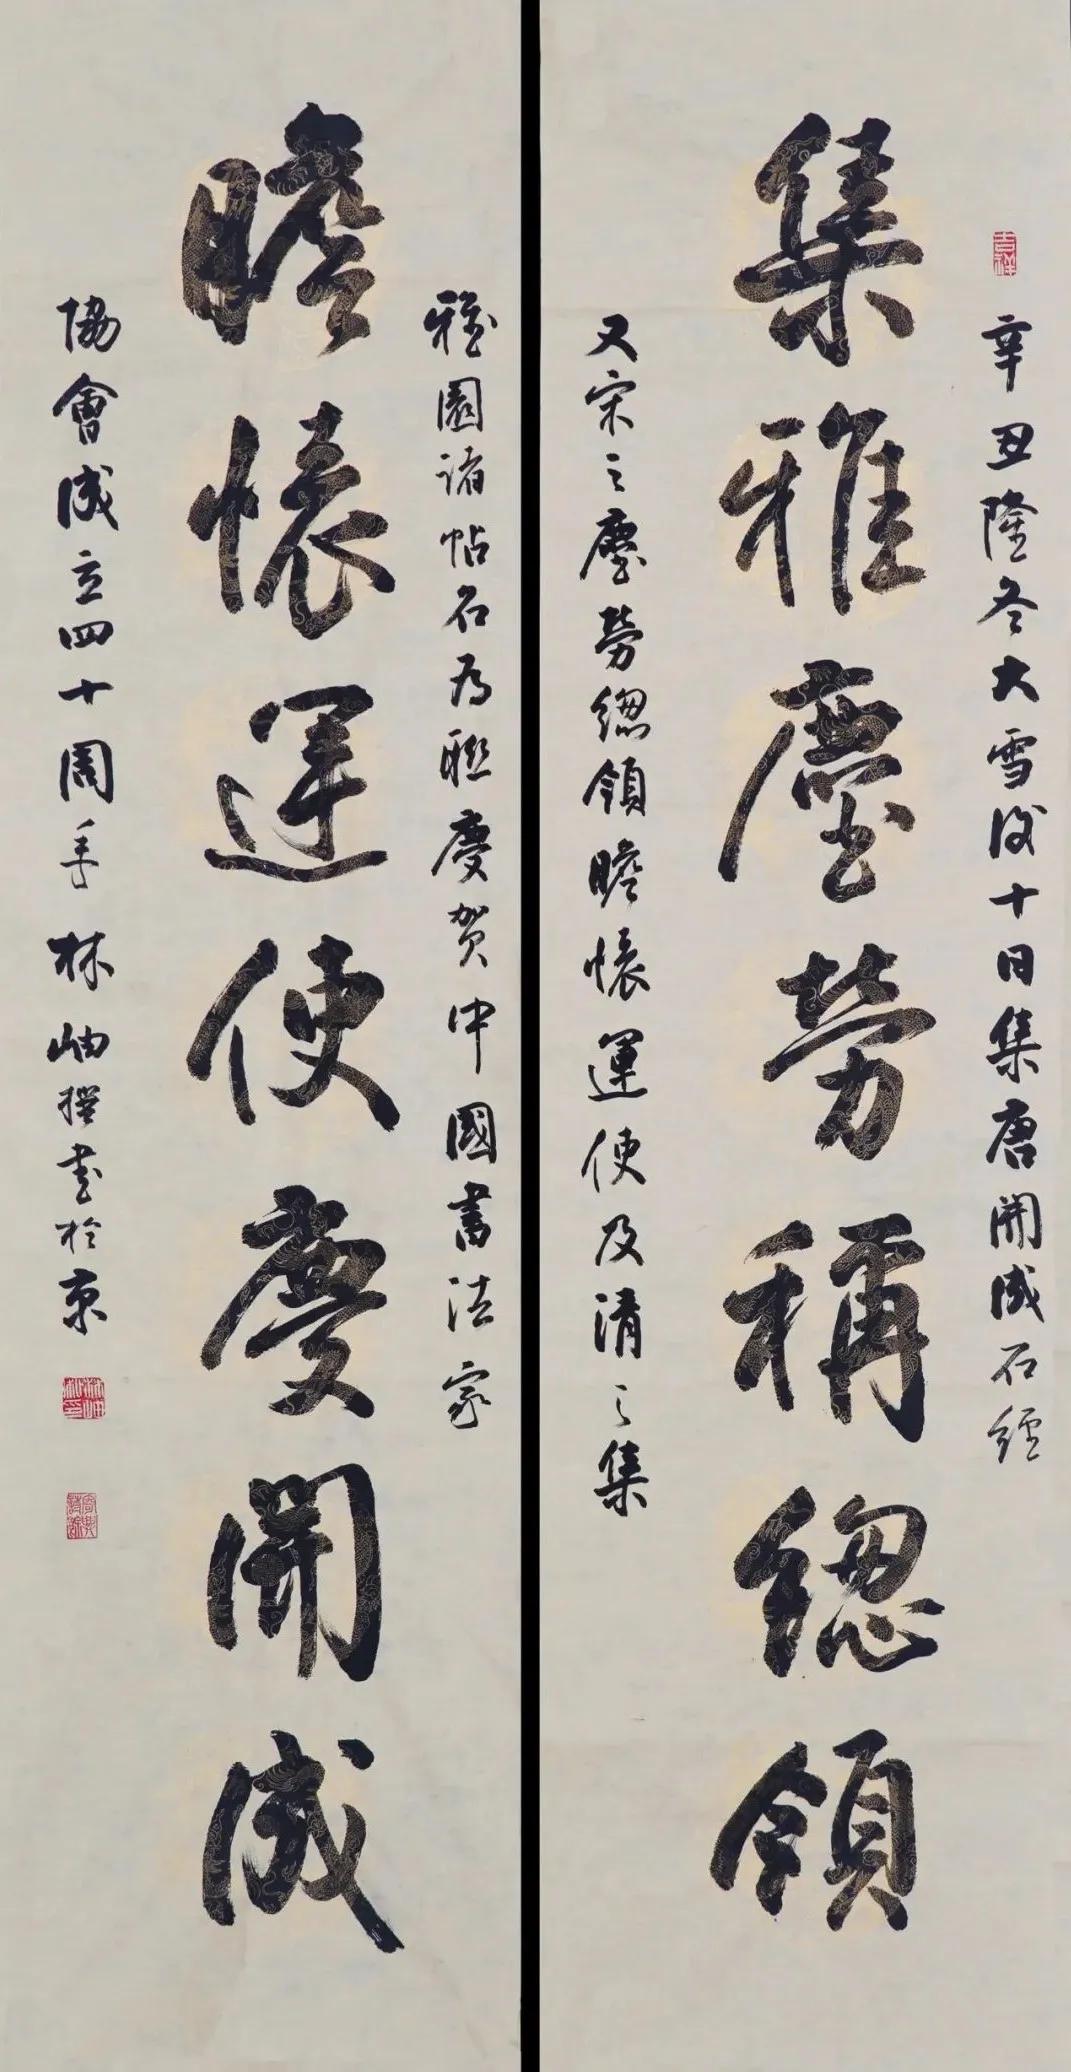 吉祥
辛丑隆冬大雪後十日集唐開成石經
集雅塵勞稱總領
又宋之塵勞總領瞻懷運使及清之集
雅園諸帖名為聯慶賀中國書法家
瞻懷運使慶開成
協會成立四十周年林岫撰書於京